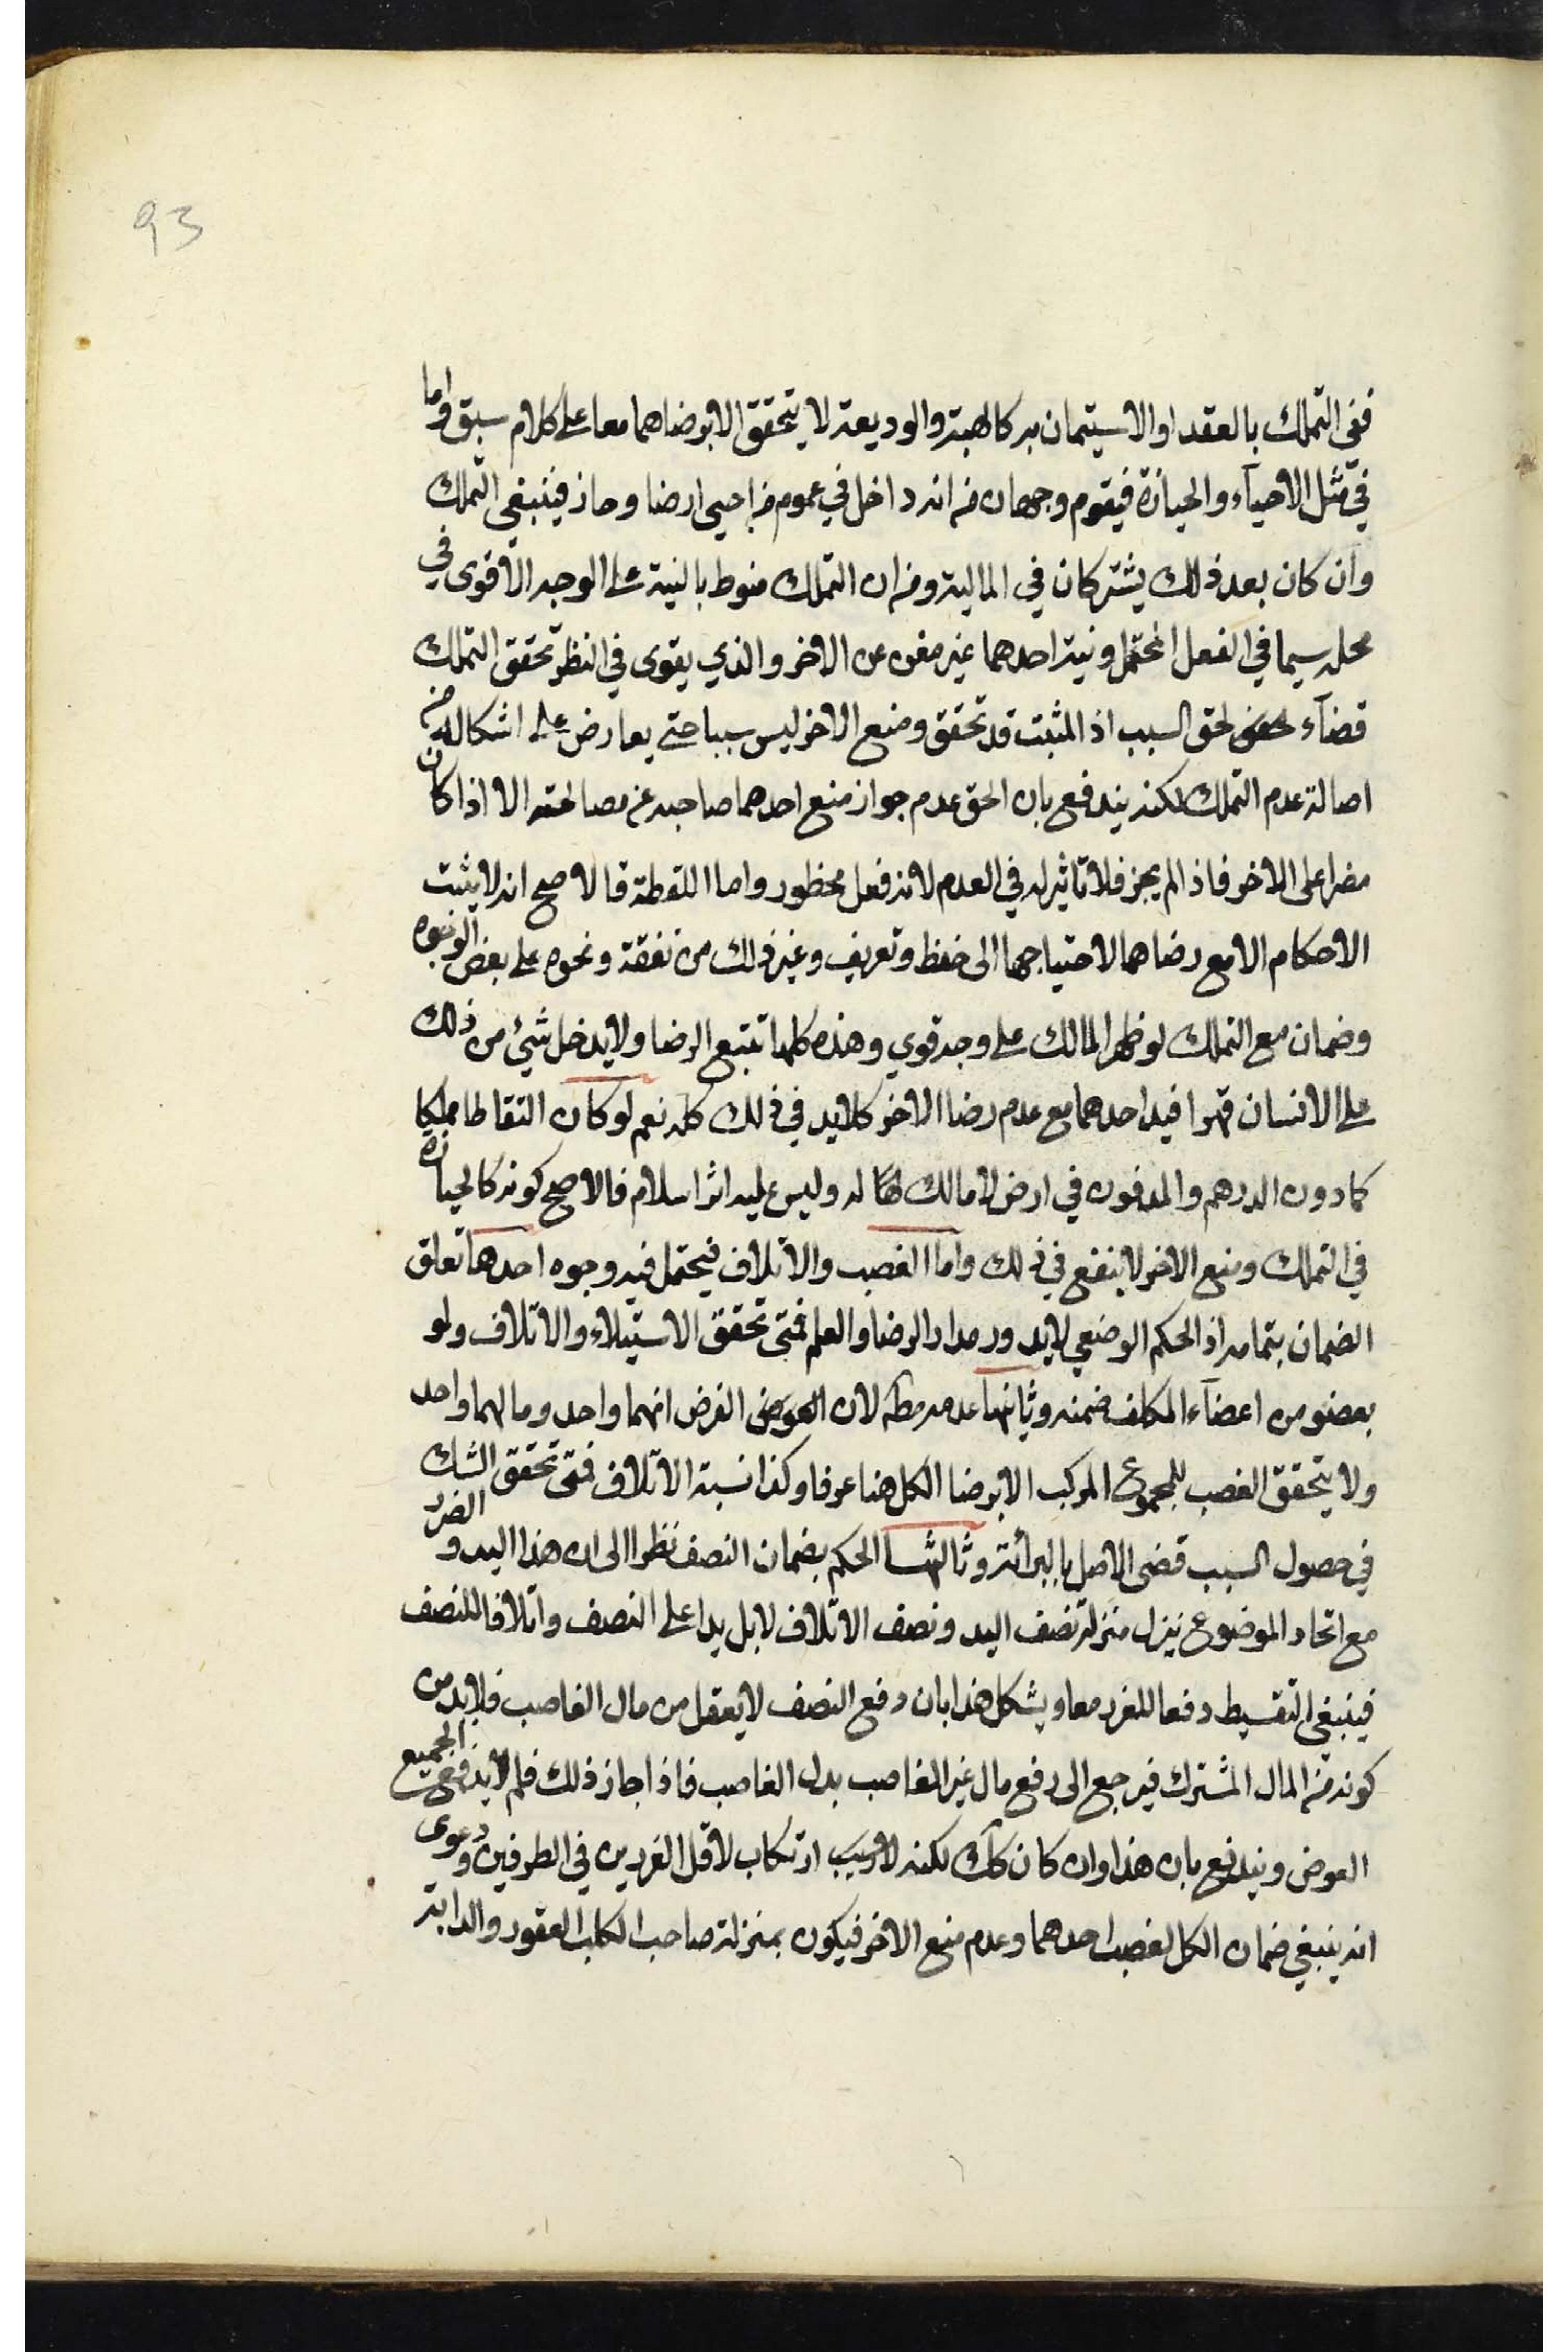 93
ففى التملك بالعقد او الاستيمان به كالهبة والوديعة لا يتحقق الا برضاهما معا على كلام سبق واما
في مثل الاحيآء والحيازة فيقوم وجهان من انه داخل في عموم من احيى ارضا وحاز فينبغي التملك
وان كان بعد ذلك يشتركان في المالية ومن ان التملك منوط بالنية على الوجه الاقوى في
محله سيما في الفعل المحتمل ونية احدهما غير مغن عن الاخر والذي يقوى في النظر تحقق التملك
قضآء لحق السبب اذ المثبت قد تحقق ومنع الاخر ليس سببا حتى يعارض على اشكال من
اصالة عدم التملك لكنه يندفع بان الحق عدم جواز منع احدهما صاحبه عن مصالحته الا اذا كان
مضرا على الاخر فاذا لم يجز فلا تاثير له في العدم لانه فعل محظور واما اللقطة فالاصح انه لا يثبت
الاحكام الا مع رضاهما لاحتياجها الى حفظ وتعريف وغير ذلك من نفقة ونحوه على بعض الوجوه
وضمان مع التملك لو ظهر المالك على وجه قوي وهذه كلها تتبع الرضا ولا يدخل شيئ من ذلك
على الانسان قهرا فيد احدهما مع عدم رضا الاخر كلا يد في ذلك كله نعم لو كان التقاطا مملكا
كما دون الدرهم والمدفون في ارض لا مالك لها له وليس عليه اثر اسلام فالاصح كونه كالحيازة
في التملك ومنع الاخر لا ينفع في ذلك واما الغصب والاتلاف فيحتمل فيه وجوه احدها تعلق
الضمان بتمامه اذ الحكم الوضعي لا يدور مدار الرضا والعلم فمتى تحقق الاستيلاء والاتلاف ولو
بعضو من اعضآء المكلف ضمنه وثانيها عدمه مطلقا لان الفرض انهما واحد ومالهما واحد
ولا يتحقق الغصب للمجموع المركب الا برضا الكل هنا عرفا وكذا نسبة الاتلاف فمتى تحقق الشك
في حصول السبب قضى الاصل بالبرائة وثالثها الحكم بضمان النصف نظرا الى ان هذا اليد والضرر
مع اتحاد الموضوع ينزل منزلة نصف اليد ونصف الاتلاف لا بل يدا على النصف واتلافا للنصف
فينبغي التقسيط دفعا للضرر معا ويشكل هذا بان دفع النصف لا يعقل من مال الغاصب فلا بد من
كونه من المال المشترك فيرجع الى دفع مال غير الغاصب بدل الغاصب فاذا جاز ذلك فلم لا يدفع الجميع
العوض ويندفع بان هذا وان كان كذلك لكنه ارتكاب لاقل الضررين في الطرفين ودعوى
انه ينبغي ضمان الكل لغصب احدهما وعدم منع الاخر فيكون بمنزلة صاحب الكلب العقور والدابة